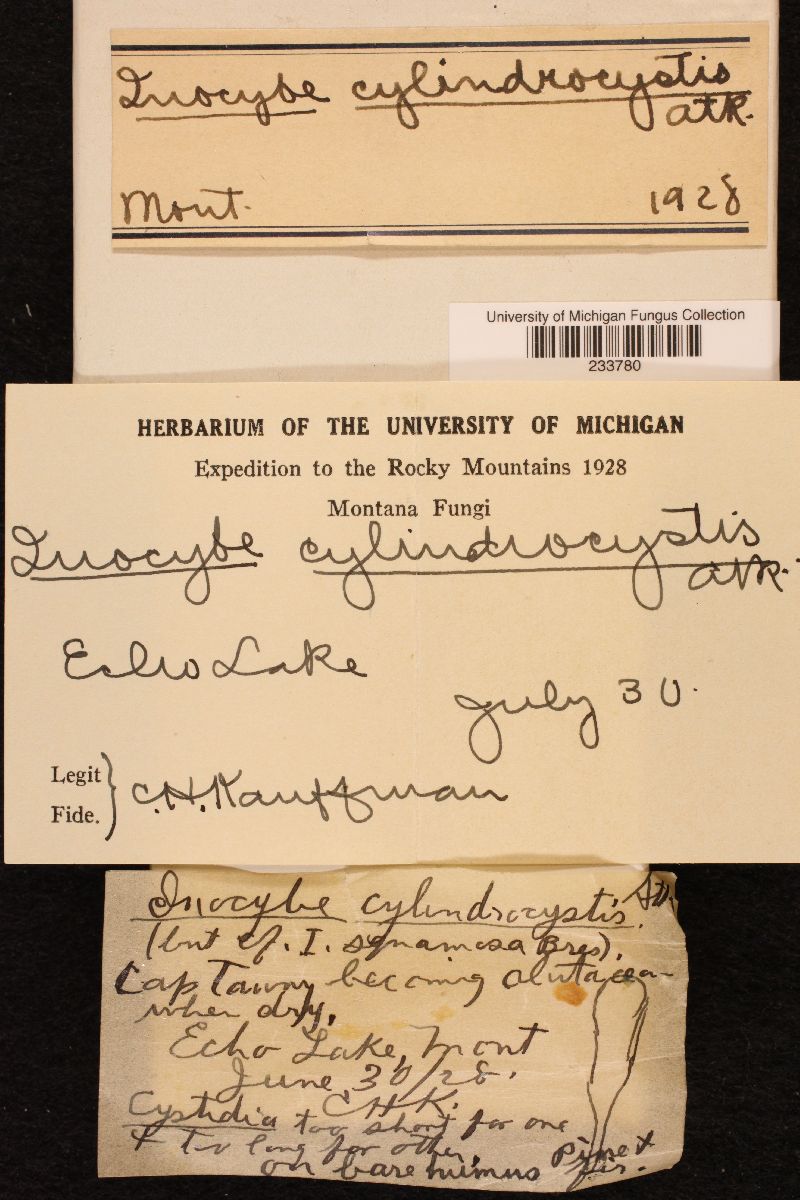 Inocybe cylindrocystis
Atk.
Mont. 1928
University of Michigan Fungus Collection
233780
HERBARIUM OF THE UNIVERSITY OF MICHIGAN
Expedition to the Rocky Mountains 1928
Montana Fungi
Inocybe cylindrocystis
Atk.
Echo Lake
July 30.
Legit
Fide. C.H. Kauffman
Inocybe cylindrocystis Atk.
(but cf. I. squamosa Bres).
Cap Tawny becoming alutacea-
when dry.
Echo Lake, Mont
June 30/28.
C.H.K.
Cystidia too short for one
& too long for other.
on bare humus Pine &
fir.